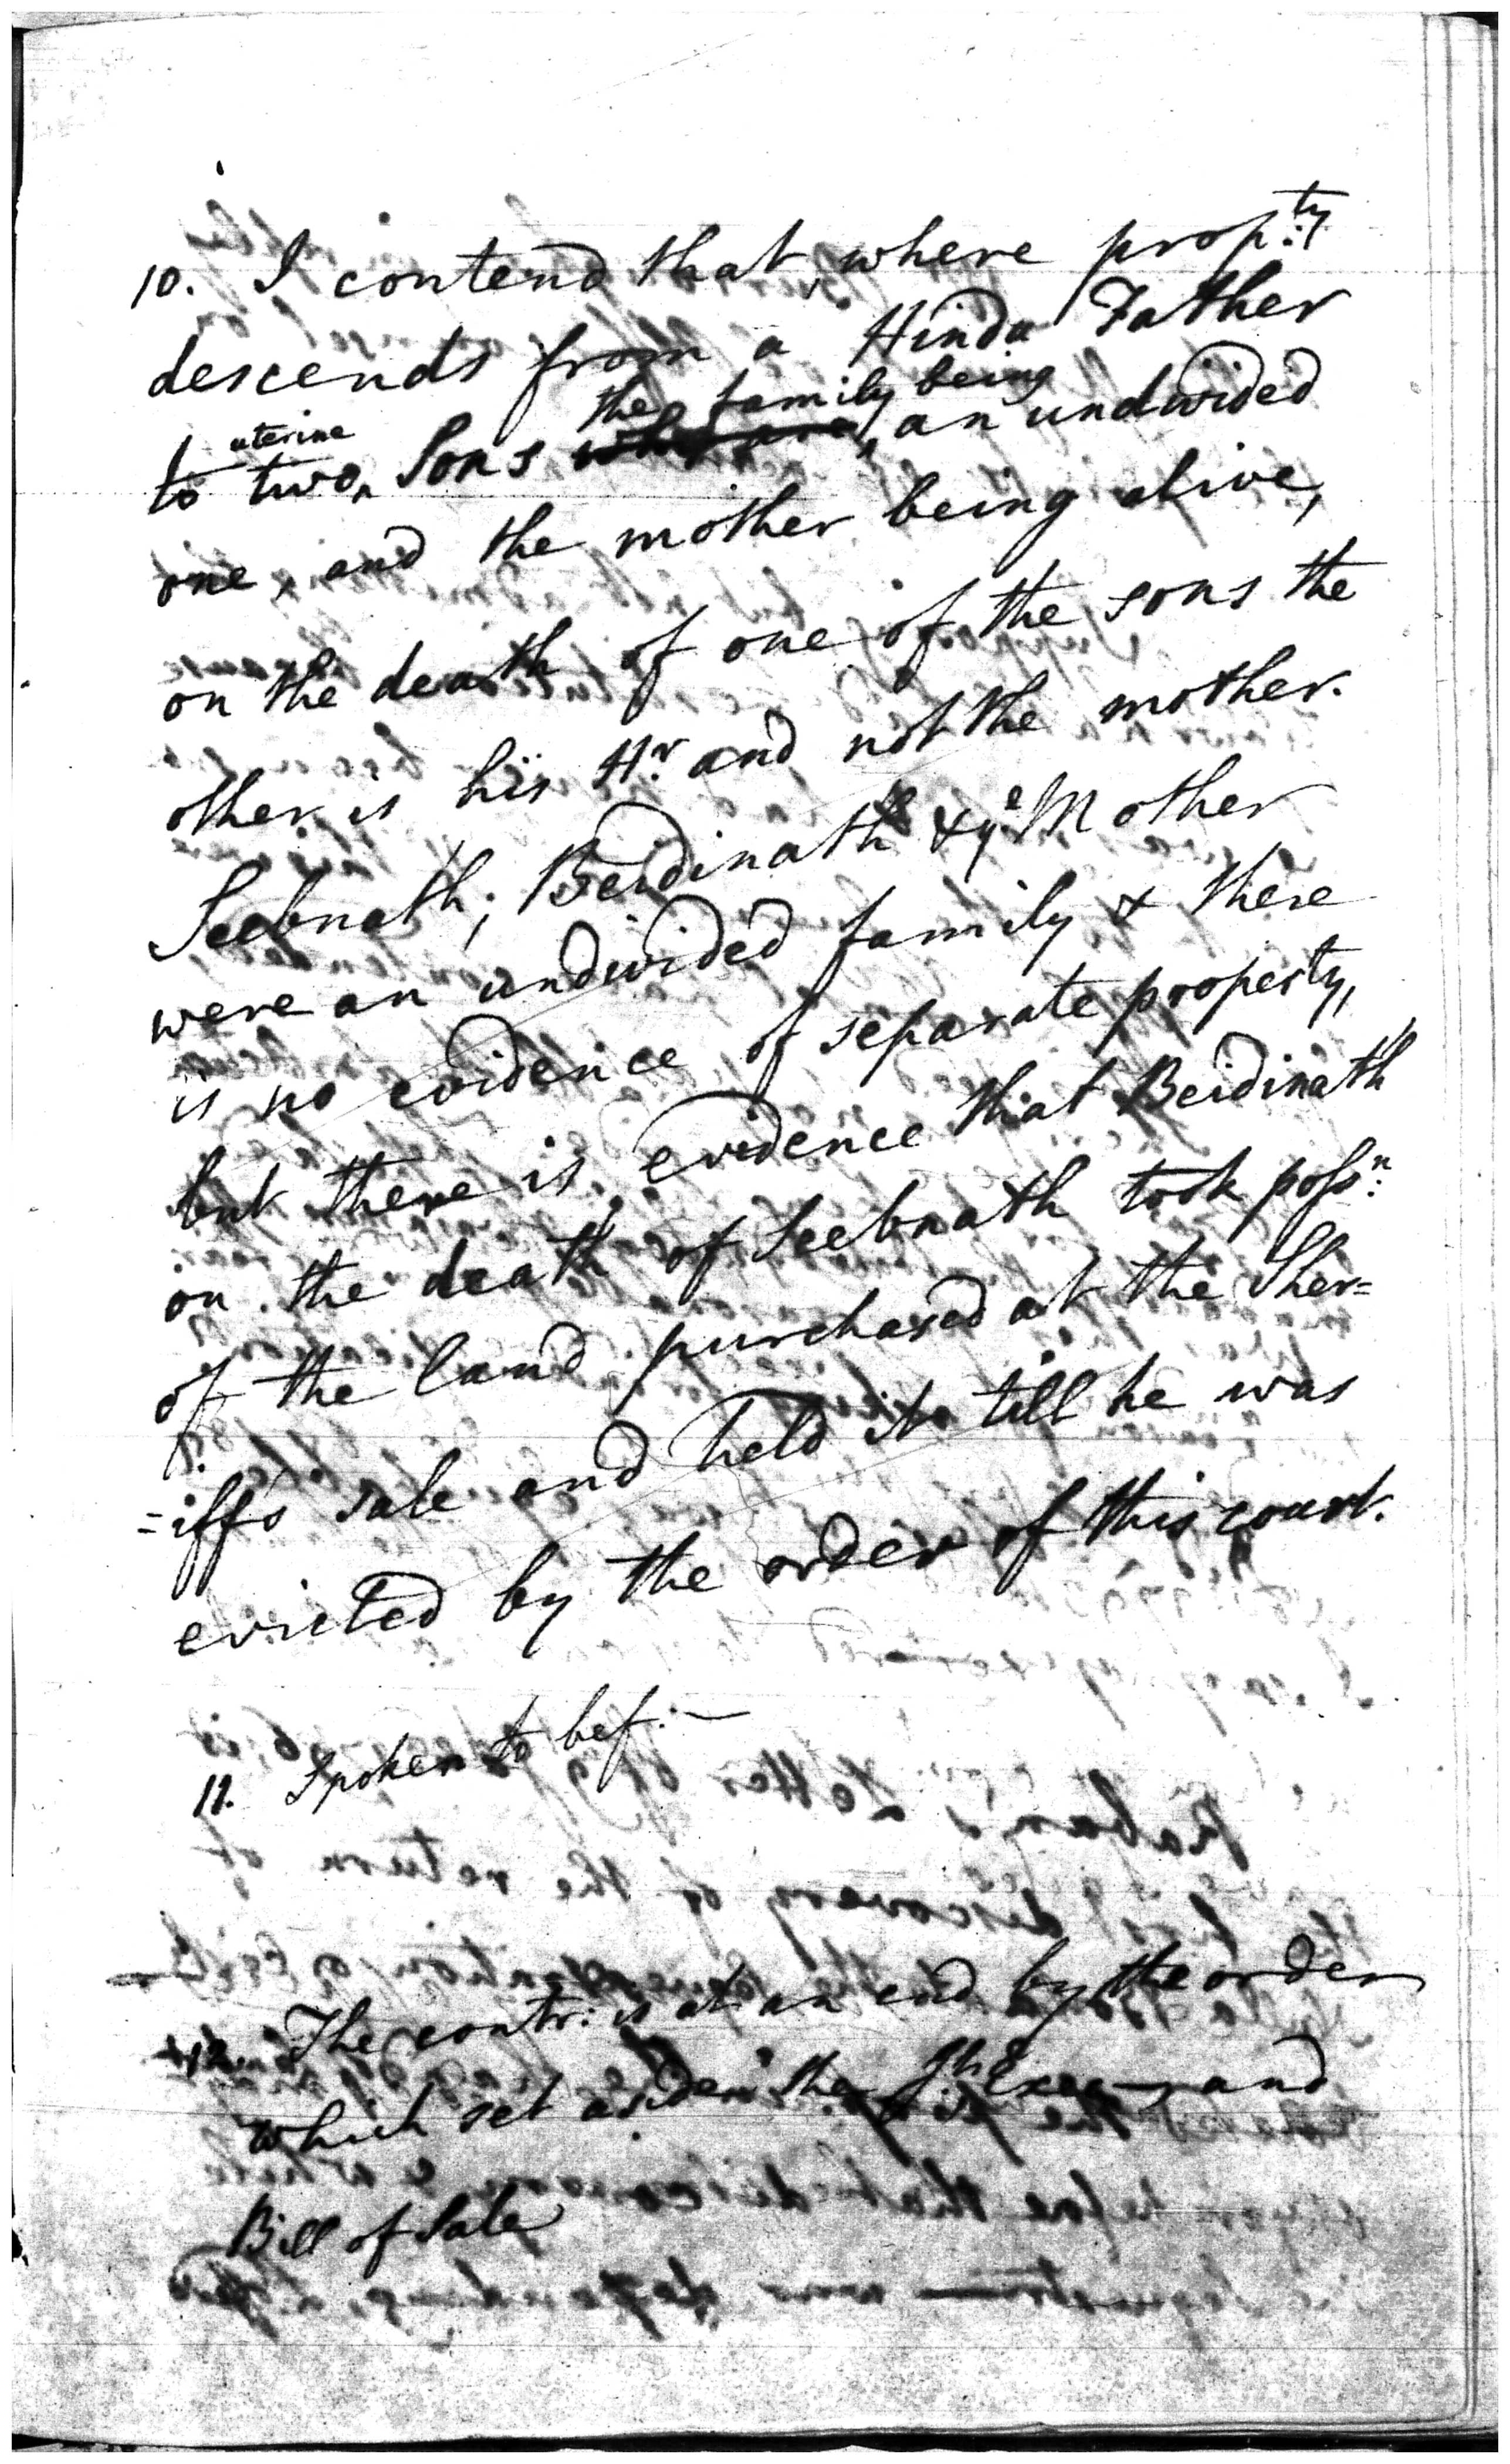 10. I contend that where prop:ty
descends from a Hindu Father
uterine the family being
to two Sons an undivided
one, and the mother being alive,
on the death of one of the sons the
other is his Hr. and not the mother.
Seebnath, Beidinath & ye Mother
were an undivided family & there
is no evidence of separate property,
but there is evidence that Beidinath
on the death of Seebnath took possn:
of the land purchased at the Sher=
=iff's sale and held it till he was
evicted by the order of this court.
11. Spoken to bef:—
12. The contr: is at an end by the order
which set aside the and
Bill of Sale